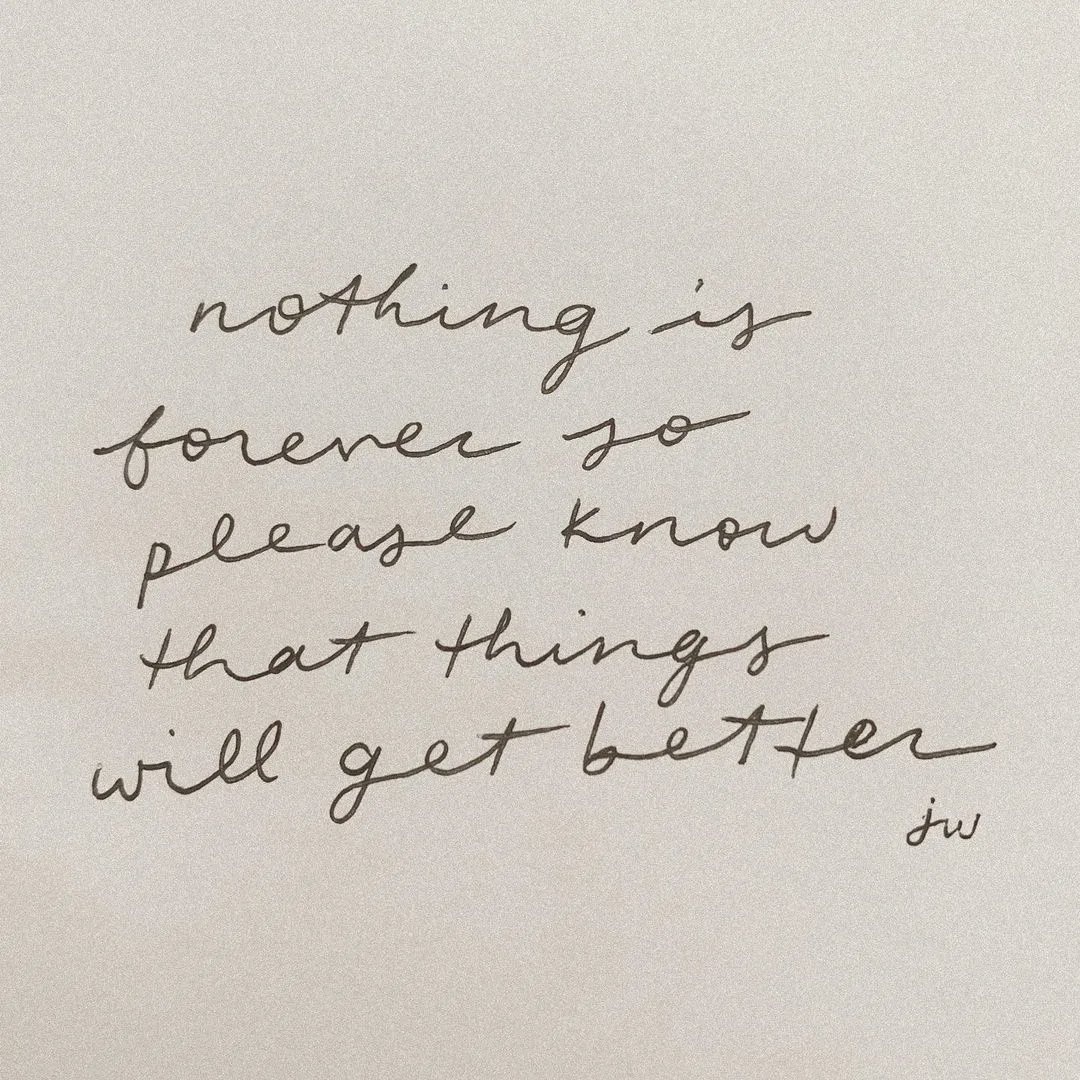 nothing is
forever so
please know
that things
will get better
jw